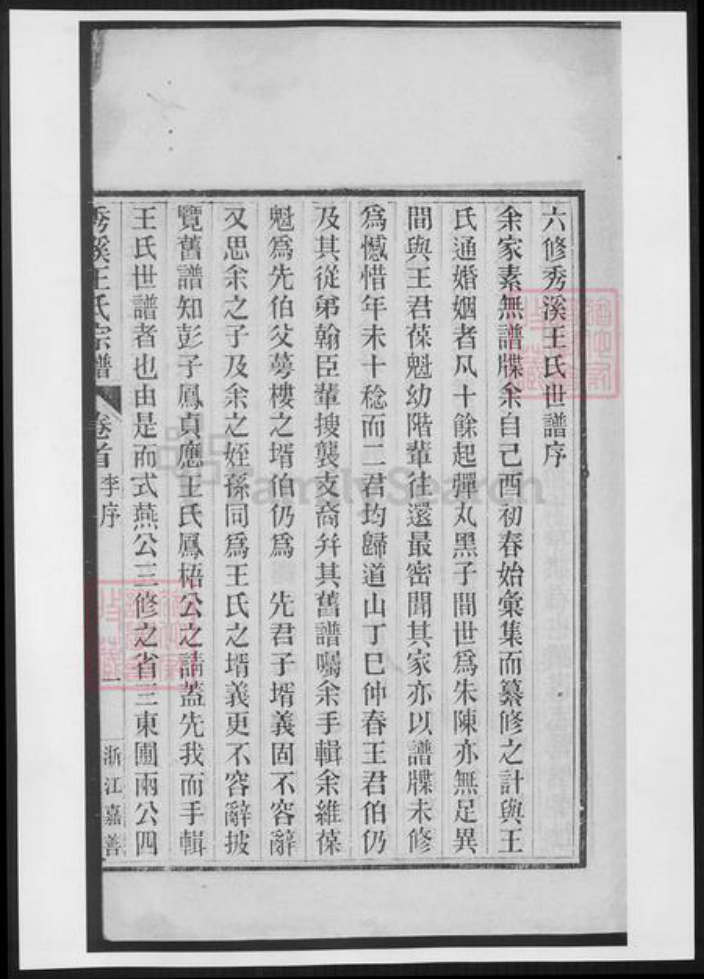 六修秀溪王氏世譜序
余家素無譜牒余自己酉初春始彙集而纂修之計與王
氏通婚姻者凡十餘起彈丸黑子間世爲朱陳亦無足異
間與王君葆魁幼階輩往還最密聞其家亦以譜牒未修
爲憾惜年未十稔而二君均歸道山丁巳仲春王君伯仍
及其從弟翰臣輩搜襲支裔幷其舊譜囑余手輯余維葆
魁爲先伯父蕚樓之壻伯仍爲　先君子壻義固不容辭
又思余之子及余之姪孫同爲王氏之壻義更不容辭披
覽舊譜知彭子鳳貞應王氏鳳梧公之請蓋先我而手輯
王氏世譜者也由是而式燕公三修之省三東圃兩公四
秀溪王氏宗譜　卷首　李序　一　浙江嘉善
FamilySearch